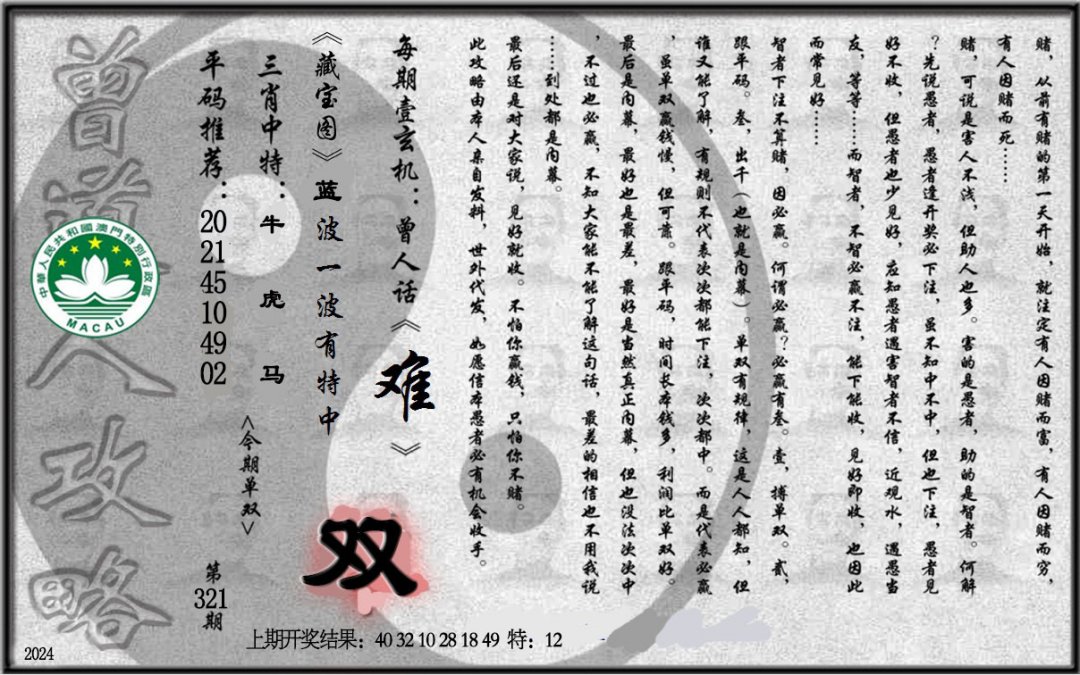 赌，从前有赌的第一天开始，就注定有人因赌而富，有人因赌而穷，
有人因赌而死……
赌，可说是害人不浅，但助人也多。害的是愚者，助的是智者。何解
？先说愚者，愚者逢开奖必下注，虽不知中不中，但也下注，愚者见
好不收，但愚者也少见好，应知愚者遇害智者不信，近观水，遇愚当
友，等等……而智者，不智必赢不注，能下能收，见好即收，也因此
而常见好……
智者下注不算赌，因必赢。何谓必赢？必赢有叁。壹，搏单双。贰，
跟平码。叁，出千（也就是内幕）。单双有规律，这是人人都知，但
谁又能了解，有规则不代表次次都能下注，次次都中。而是代表必赢
，虽单双赢钱慢，但可靠。跟平码，时间长本钱多，利润比单双好。
最后是内幕，最好也是最差，最好是当然真正内幕，但也没法次次中
，不过也必赢，不知大家能不能了解这句话，最差的相信也不用我说
……到处都是内幕。
最后还是对大家说，见好就收。不怕你赢钱，只怕你不赌。
此攻略由本人亲自发料，世外代发，如愿信本愚者必有机会收手。
每期壹玄机：曾人话《难》
《藏宝图》蓝波一波有特中
三肖中特：牛 虎 马
平码推荐：20 21 45 10 49 02
<今期单双>
双
第321期
曾道人攻略
中華人民共和國澳門特別行政區
MACAU
上期开奖结果：40 32 10 28 18 49 特：12
2024